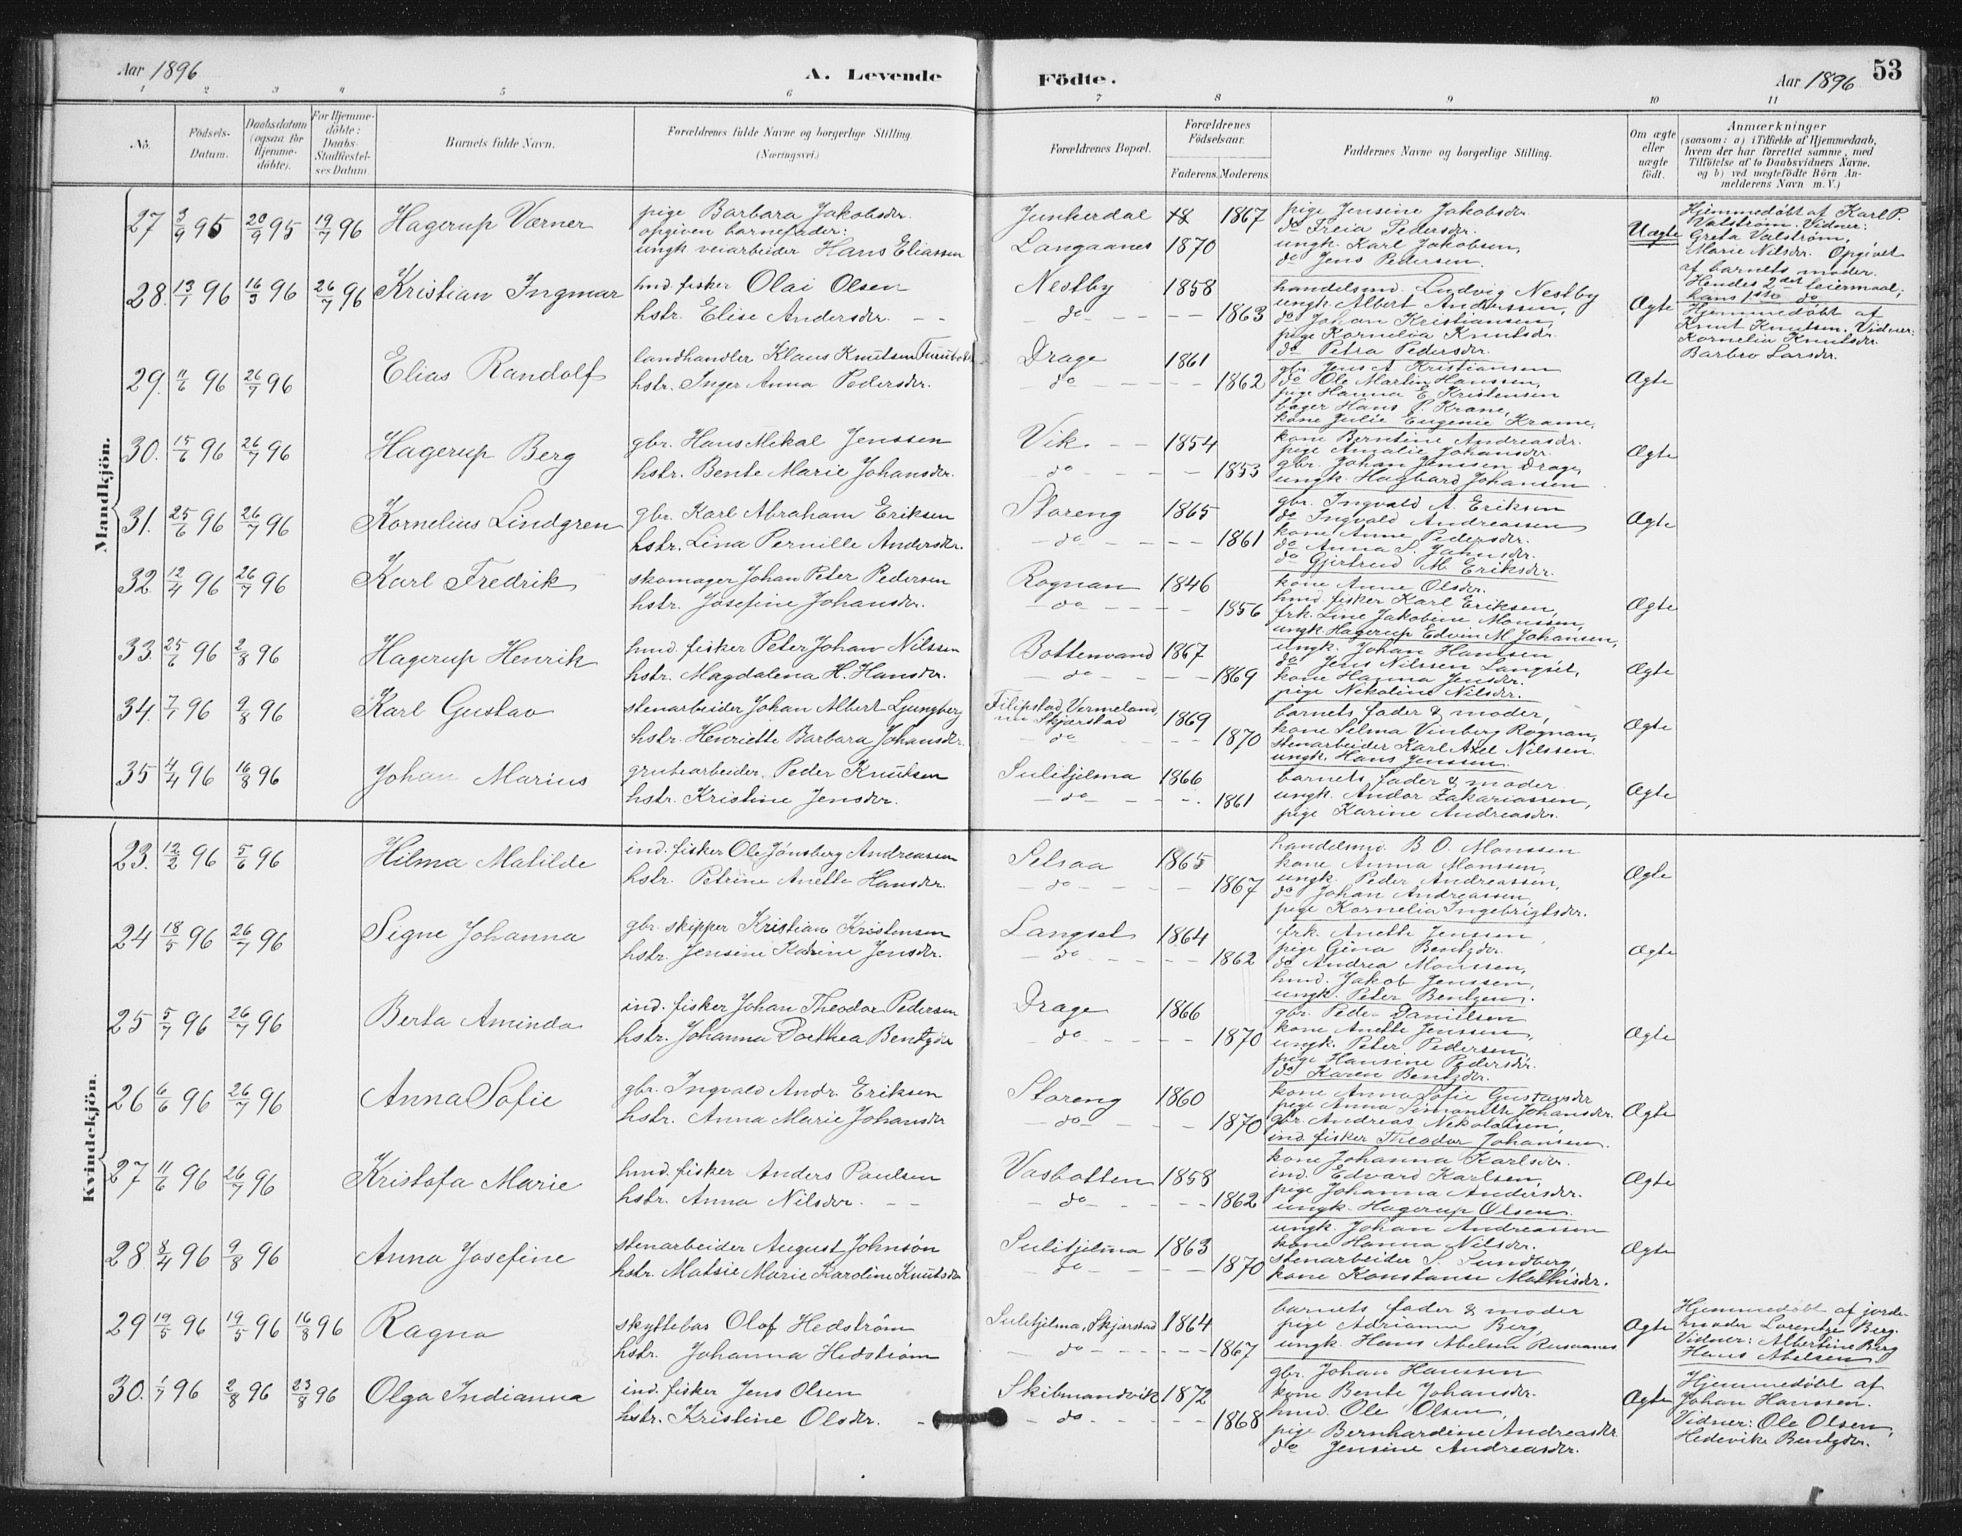 Aar 1896
A. Levende
Födte.
Aar 1896
53
1 2 3 4 5 6 7 8 9 10 11
No.
Födsels-
Datum.
Daabsdatum
(ogsaa för
Hjemme-
döbte).
For Hjemme-
döbte:
Daabs-
Stadfæstel-
ses Datum.
Barnets fulde Navn.
Forældrenes fulde Navne og borgerlige Stilling.
(Næringsvei.)
Forældrenes Bopæl.
Forældrenes
Födselsaar.
Faderens. Moderens.
Faddernes Navne og borgerlige Stilling.
Om ægte
eller
uægte
födt.
Anmærkninger
(saasom: a) i Tilfælde af Hjemmedaab,
hvem der har forrettet samme, med
Tilföielse af to Daabsvidners Navne,
og b) ved uægtefödte Börn An-
melderens Navn m. V.)
Mandkjön.
27 3/9 95 20/9 95 19/7 96 Hagerup Værner
pige Barbara Jakobsdr.
opgiven barnefader:
ungk veiarbeider Hans Eliassen
Junkerdal 1867
Langaanes 1870
pige Jensine Jakobsdr.
do Freia Pedersdr.
ungk. Karl Jakobsen,
do Jens Pedersen.
Uægte
Hjemmedøbt af Karl P.
Valstrøm. Vidner:
Greta Valstrøm,
Marie Nilsdr. Opgivet
af barnets moder.
Hendes 2det leiermaal;
hans 1ste do
28. 13/1 96 16/3 96 26/7 96 Kristian Ingmar
hmd. fisker Olai Olsen
hstr. Elise Andersdr.
Nestby 1858
do 1863
handelsmd. Ludvig Nestby
ungk. Albert Andreassen,
do Johan Kristiansen,
pige Kornelia Knutsdr.
do Petra Pedersdr.
Ægte
Hjemmedøbt af
Knut Knutsen. Vidner:
Kornelia Knutsdr.
Barbro Larsdr.
29. 11/6 96 26/7 96 Elias Randolf
landhandler Klaus Knutsen
hstr. Inger Anna Pedersdr.
Drage 1861
do 1862
gbr. Jens A. Kristiansen
do Ole Martin Hanssen,
pige Hanna E. Kristensen
bager Hans P. Krane,
kone Julie Eugenie Krane,
Ægte
30. 15/6 96 26/7 96 Hagerup Berg
gbr. Hans Mikal Jenssen
hstr. Bente Marie Johansdr.
Vik. 1854
do 1853
kone Berntine Andreasdr.
pige Amalie Johansdr.
gbr. Johan Jenssen Drage,
ungk. Hagbard Johansen
Ægte
31. 25/6 96 26/7 96 Kornelius Lindgren
gbr. Karl Abraham Eriksen
hstr. Lina Pernille Andersdr.
Storeng 1865
do 1861
gbr. Ingvald A. Eriksen
do Ingvald Andreassen
kone Anne Pedersdr.
do Anna S. Jahnsdr.
do Gjertrud M. Eriksdr.
Ægte
32 12/4 96 26/7 96 Karl Fredrik
skomager Johan Peter Pedersen
hstr. Josefine Johansdr.
Rognan 1846
do 1856
kone Anne Olsdr.
hmd. fisker Karl Eriksen,
frk. Line Jakobine Monssen,
ungk. Hagerup Edvin M. Johansen,
Ægte
33. 25/6 96 2/8 96 Hagerup Henrik
hmd. fisker Peter Johan Nilssen
hstr. Magdalena H. Hansdr.
Bottenvand 1867
do 1869
ungk. Johan Hanssen
do Jens Nilssen Langset,
kone Hanna Jensdr.
pige Nekoline Nilsdr.
Ægte
34. 7/1 96 9/8 96 Karl Gustav
stenarbeider Johan Albert Ljungberg
hstr. Henriette Barbara Johansdr.
Filipstad, Vermeland,
nu Skjærstad 1869
do 1870
barnets fader & moder,
kone Selma Vinberg Rognan,
stenarbeider Karl Axel Nilssen
ungk. Hans Jenssen.
Ægte
35 4/4 96 16/8 96 Johan Marius
grubearbeider. Peder Knutsen
hstr. Kristine Jensdr.
Sulitjelma 1866
do 1861
barnets fader & moder
ungk. Andor Zakariassen,
pige Karine Andreasdr.
Ægte
Kvindekjön.
23. 12/2 96 5/6 96 Hilma Matilde
ind. fisker Ole Jønsberg Andreassen
hstr. Petrine Anette Hansdr.
Setsaa 1865
do 1867
handelsmd. B. O. Monssen
kone Anna Monssen,
ungk. Peder Andreassen,
do Johan Andreassen,
pige Kornelia Ingebrigtsdr.
Ægte
24 18/5 96 26/7 96 Signe Johanna
gbr. skipper Kristian Kristensen
hstr. Jensine Katrine Jensdr.
Langset 1864
do 1862
frk. Anette Jenssen,
pige Gina Bentzdr.
do Andrea Monssen,
hmd. Jakob Jenssen,
ungk. Peter Bentzen.
Ægte
25 5/7 96 26/7 96 Berta Aminda
ind. fisker Johan Theodor Pedersen
hstr. Johanna Dorthea Bentzdr
Drage 1866
do 1870
gbr. Peder Danielsen
kone Anette Jenssen,
ungk. Peter Pedersen,
pige Hansine Pedersdr.
do Karen Bentzdr.
Ægte
26 6/6 96 26/7 96 Anna Sofie
gbr. Ingvald Andr. Eriksen
hstr. Anna Marie Johansdr
Storeng 1860
do 1870
kone Anna Sofie Gustavsdr
pige Anna Simonette Johansdr.
gbr. Andreas Nekolaisen,
ind. fisker Theodor Johansen.
Ægte
27 11/6 96 26/7 96 Kristofa Marie
hmd. fisker Anders Paulsen
hstr. Anna Nilsdr.
Vasbotten 1858
do 1862
kone Johanna Karlsdr.
ind. Edvard Karlsen,
pige Johanna Andersdr.
ungk. Hagerup Olsen.
Ægte
28 8/4 96 9/8 96 Anna Josefine
stenarbeider August Johnsön
hstr. Matsie Marie Karoline Knutsdr
Sulitjelma 1863
do 1870
ungk. Johan Andreassen
kone Hanna Nilsdr.
stenarbeider S. Sundberg,
kone Konstanse Mathisdr.
Ægte
29 19/5 96 19/5 96 16/8 96 Ragna
skyttebas Olof Hedström
hstr. Johanna Hedström
Sulitjelma, Skjærstad 1864
do 1867
barnets fader & moder
pige Adrianna Berg,
ungk. Hans Abelsen Rusvanes
Ægte
Hjemmedøbt af jorde-
moder Lorentze Berg.
Vidner: Albertine Berg
Hans Abelsen
30. 1/7 96 2/8 96 23/8 96 Olga Indianna
ind. fisker Jens Olsen
hstr. Kristine Olsdr.
Skibmandvik 1872
do 1868
gbr. Johan Hanssen
kone Bente Johansdr.
hmd. Ole Olsen,
pige Bernhardine Andreasdr
do Jensine Andreasdr.
Ægte
Hjemmedøbt af
Johan Hanssen.
Vidner: Ole Olsen,
Hedevike Bentzdr.